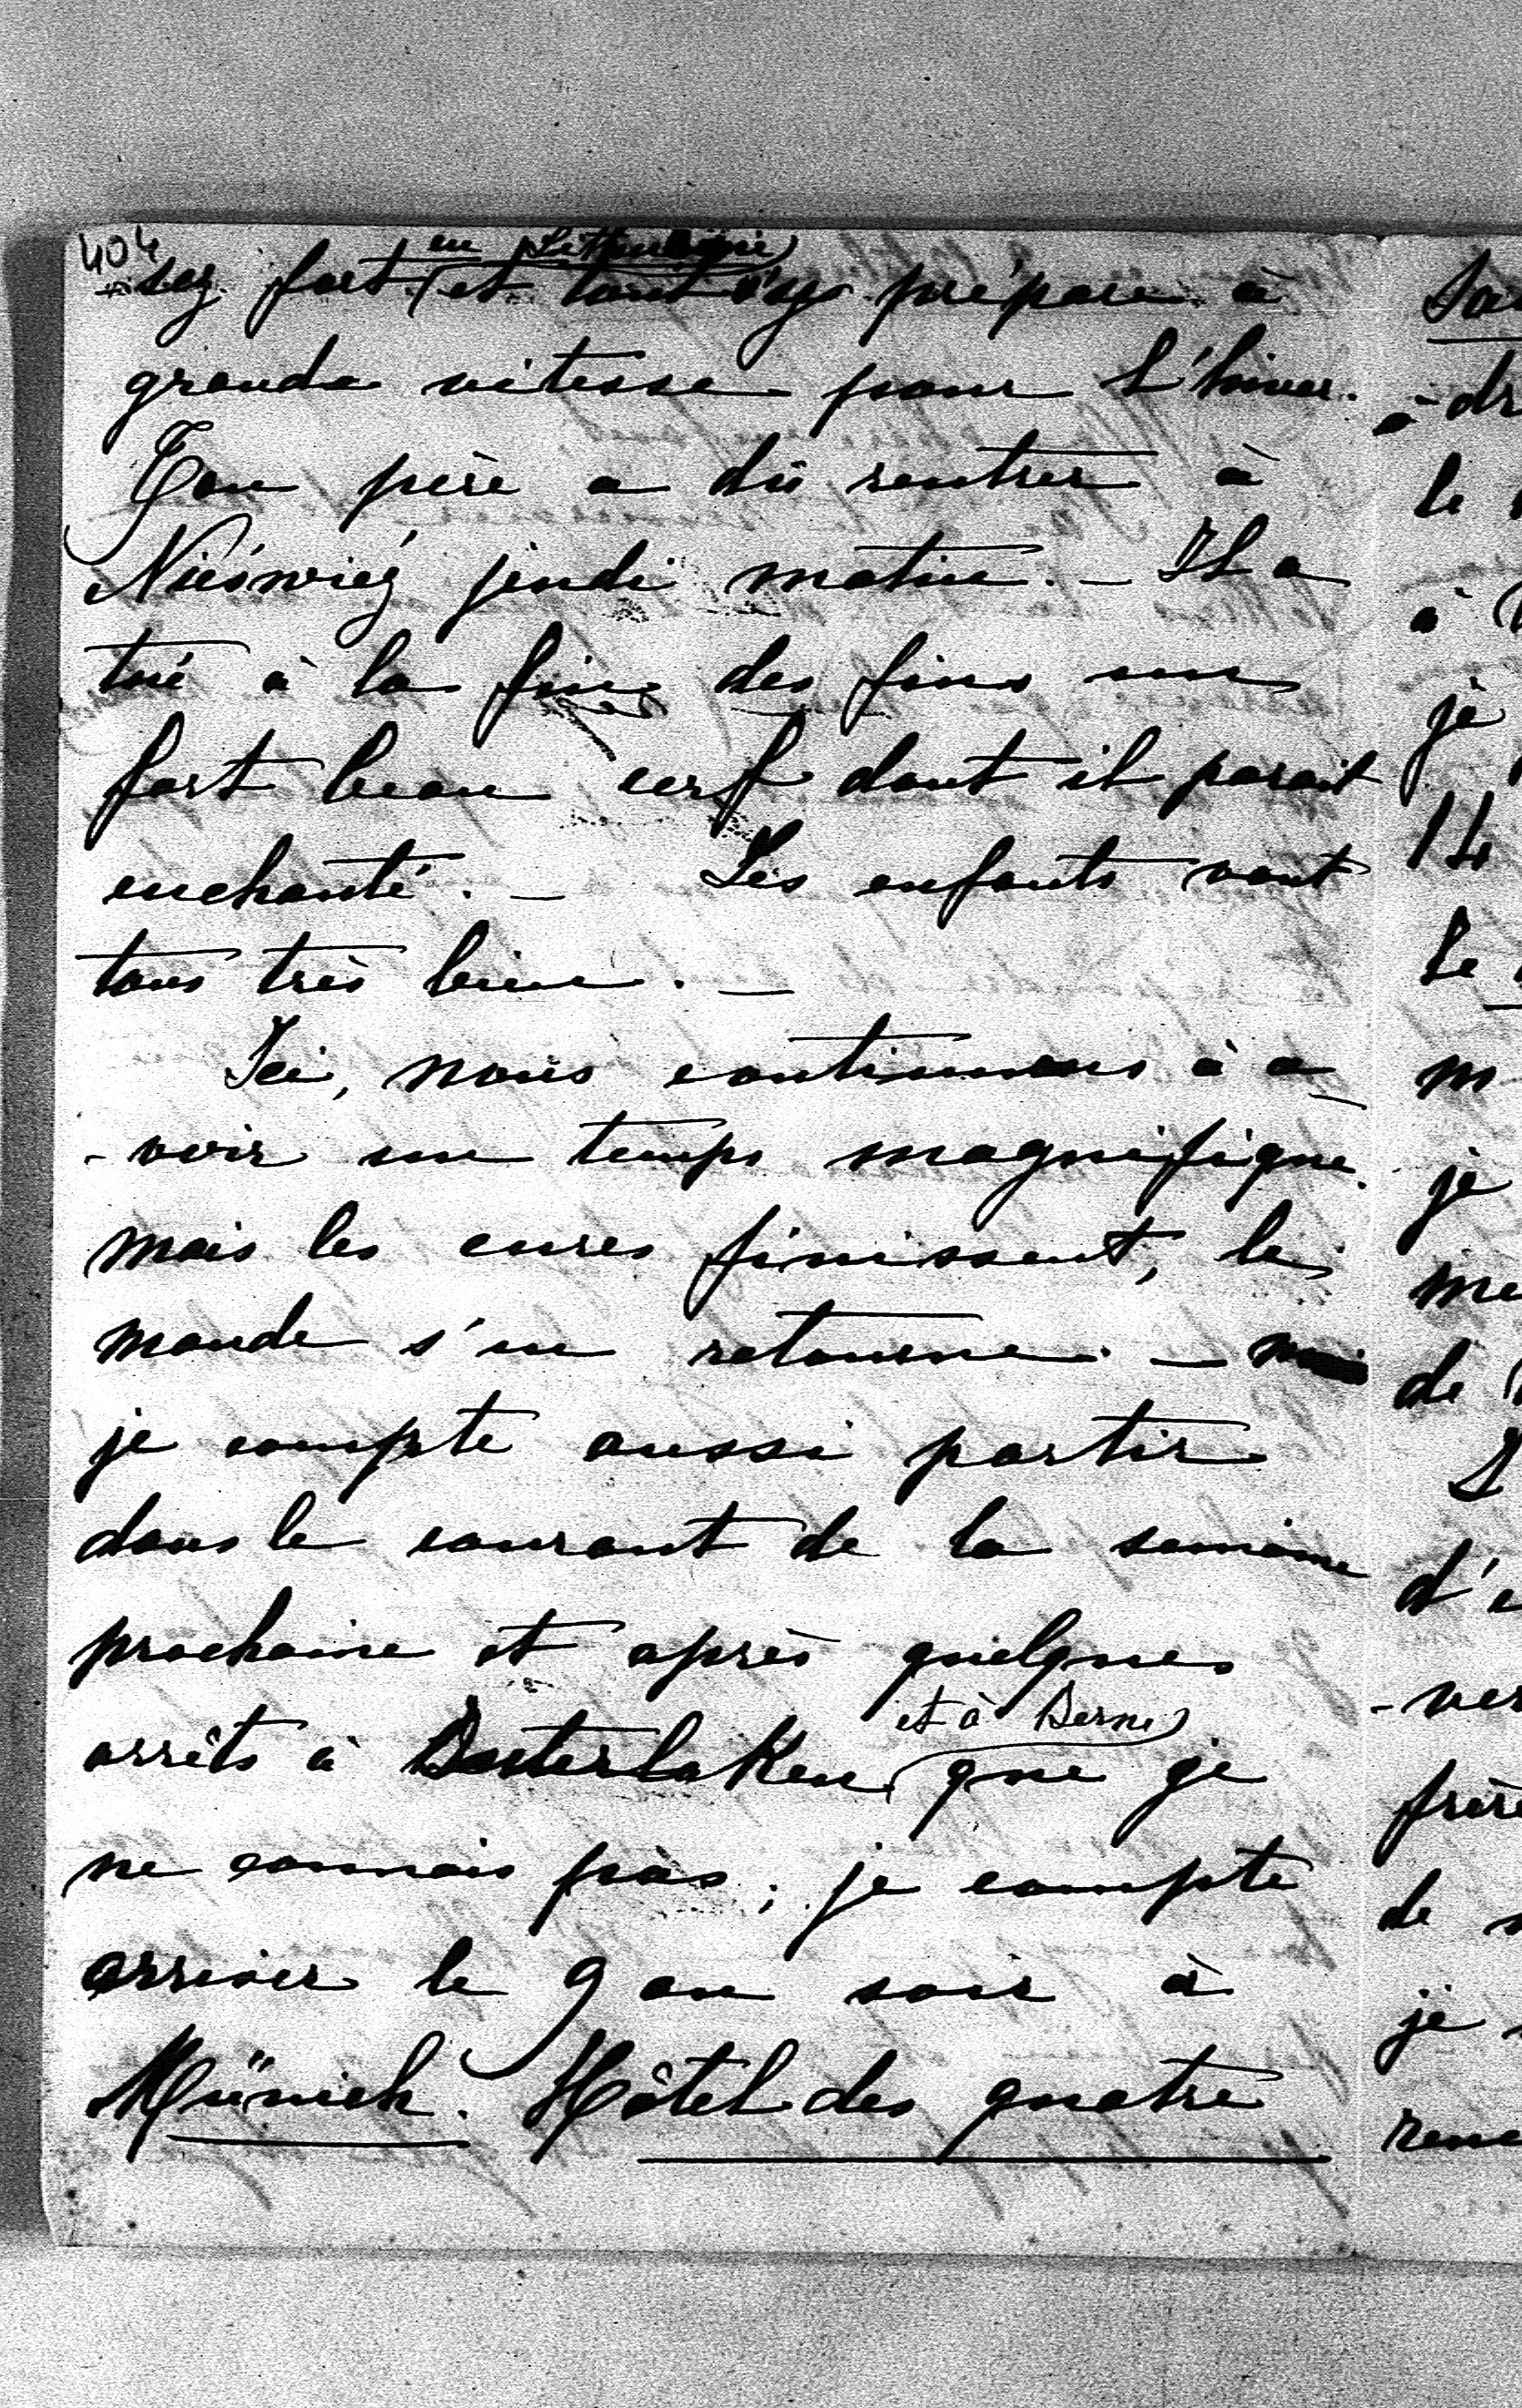 404
en Lithuanie
-sez fort et tout s'y prépare à
grande vitesse pour l'hiver.
Ton père a dû rentrer à
Nieśwież jeudi matin. - Il a
tué à la fin des fins un
fort beau cerf dont il parait
enchanté. - Les enfants vont
tous très bien. -
Ici, nous continuons à a
-voir un temps magnifique.
mais les cures finissent, le
monde s'en retourne. -
je compte aussi partir
dans le courant de la semaine
prochaine et après quelques
et à Berne
arrêts à Interlaken que je
ne connais pas; je compte
arriver le 9 au soir à
Münich. Hôtel des quatre